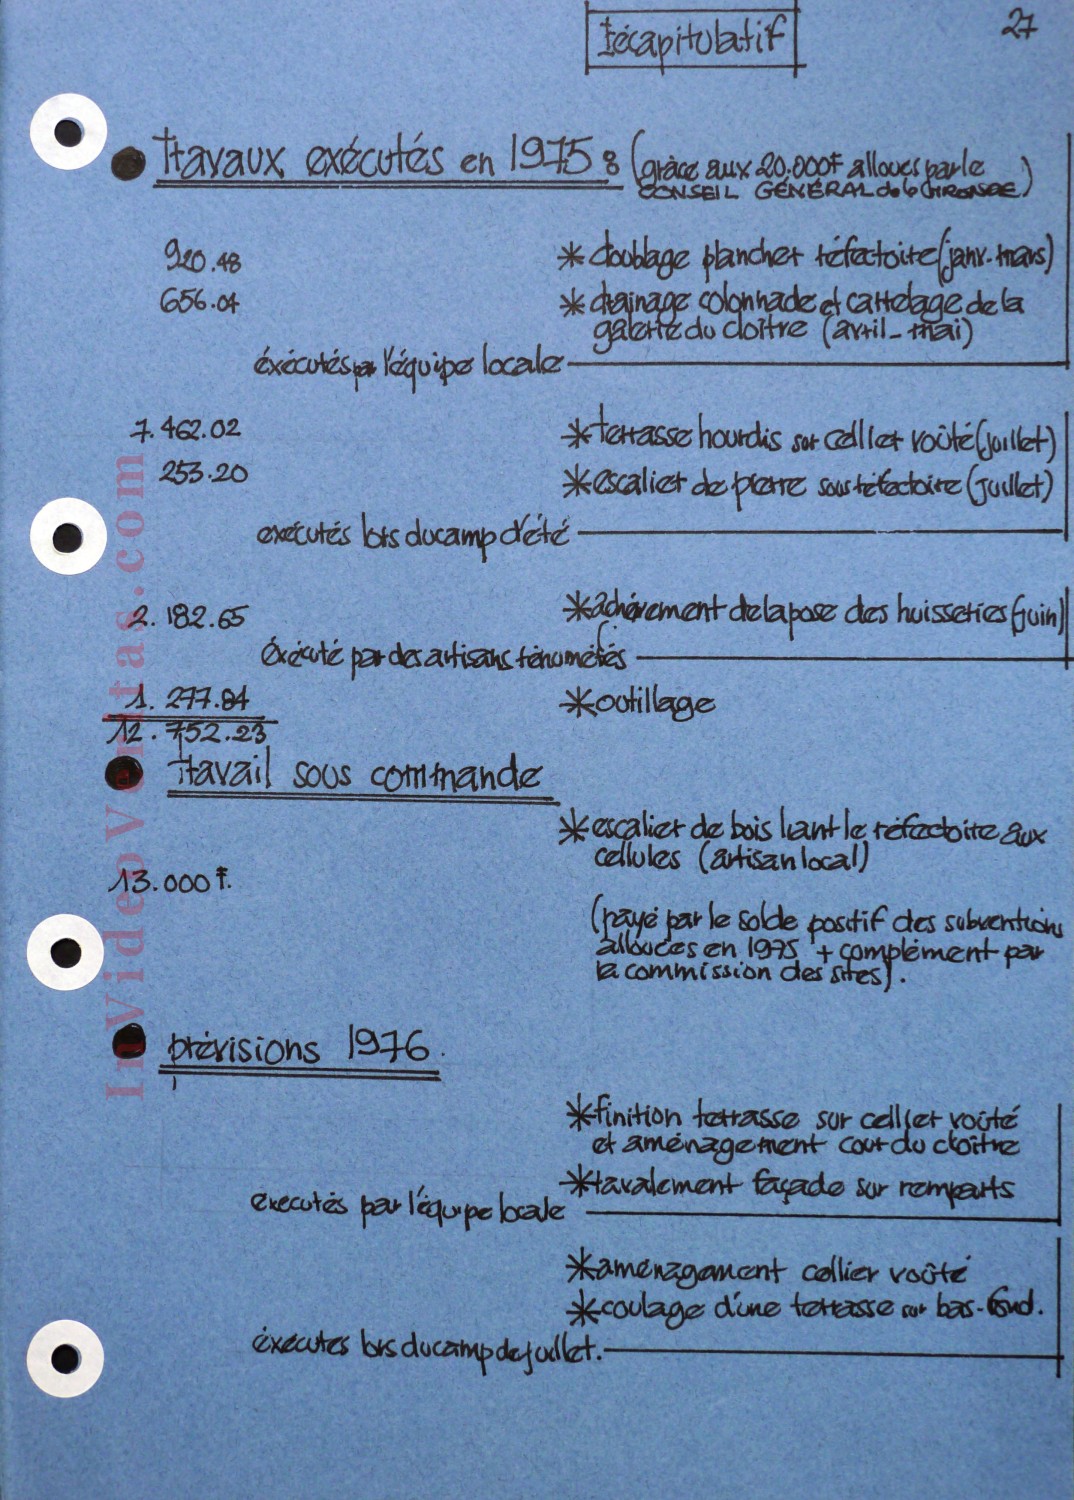 récapitulatif
27
travaux exécutés en 1975 : (grâce aux 20.000F alloués par le
CONSEIL GÉNÉRAL de la GIRONDE)
920.48 * doublage plancher réfectoire (janv.-mars)
656.04 * drainage colonnade et carrelage de la
galerie du cloître (avril - mai)
éxécutés par l'équipe locale
7.462.02 * terrasse hourdis sur cellier voûté (juillet)
253.20 * escalier de pierre sous réfectoire (juillet)
exécutés lors du camp d'été
2.182.65 * achèvement de la pose des huisseries (juin)
éxécuté par des artisans rénumérés
1.277.84 * outillage
12.752.23
travail sous commande
* escalier de bois liant le réfectoire aux
cellules (artisan local)
13.000 F.
(payé par le solde positif des subventions
allouées en 1975 + complément par
la commission des sites).
prévisions 1976.
* finition terrasse sur cellier voûté
et aménagement cour du cloître
* ravalement façade sur remparts
executés par l'équipe locale
* aménagement cellier voûté
* coulage d'une terrasse sur bas-fond.
éxécutés lors du camp de juillet.
InVideoVeritas.com